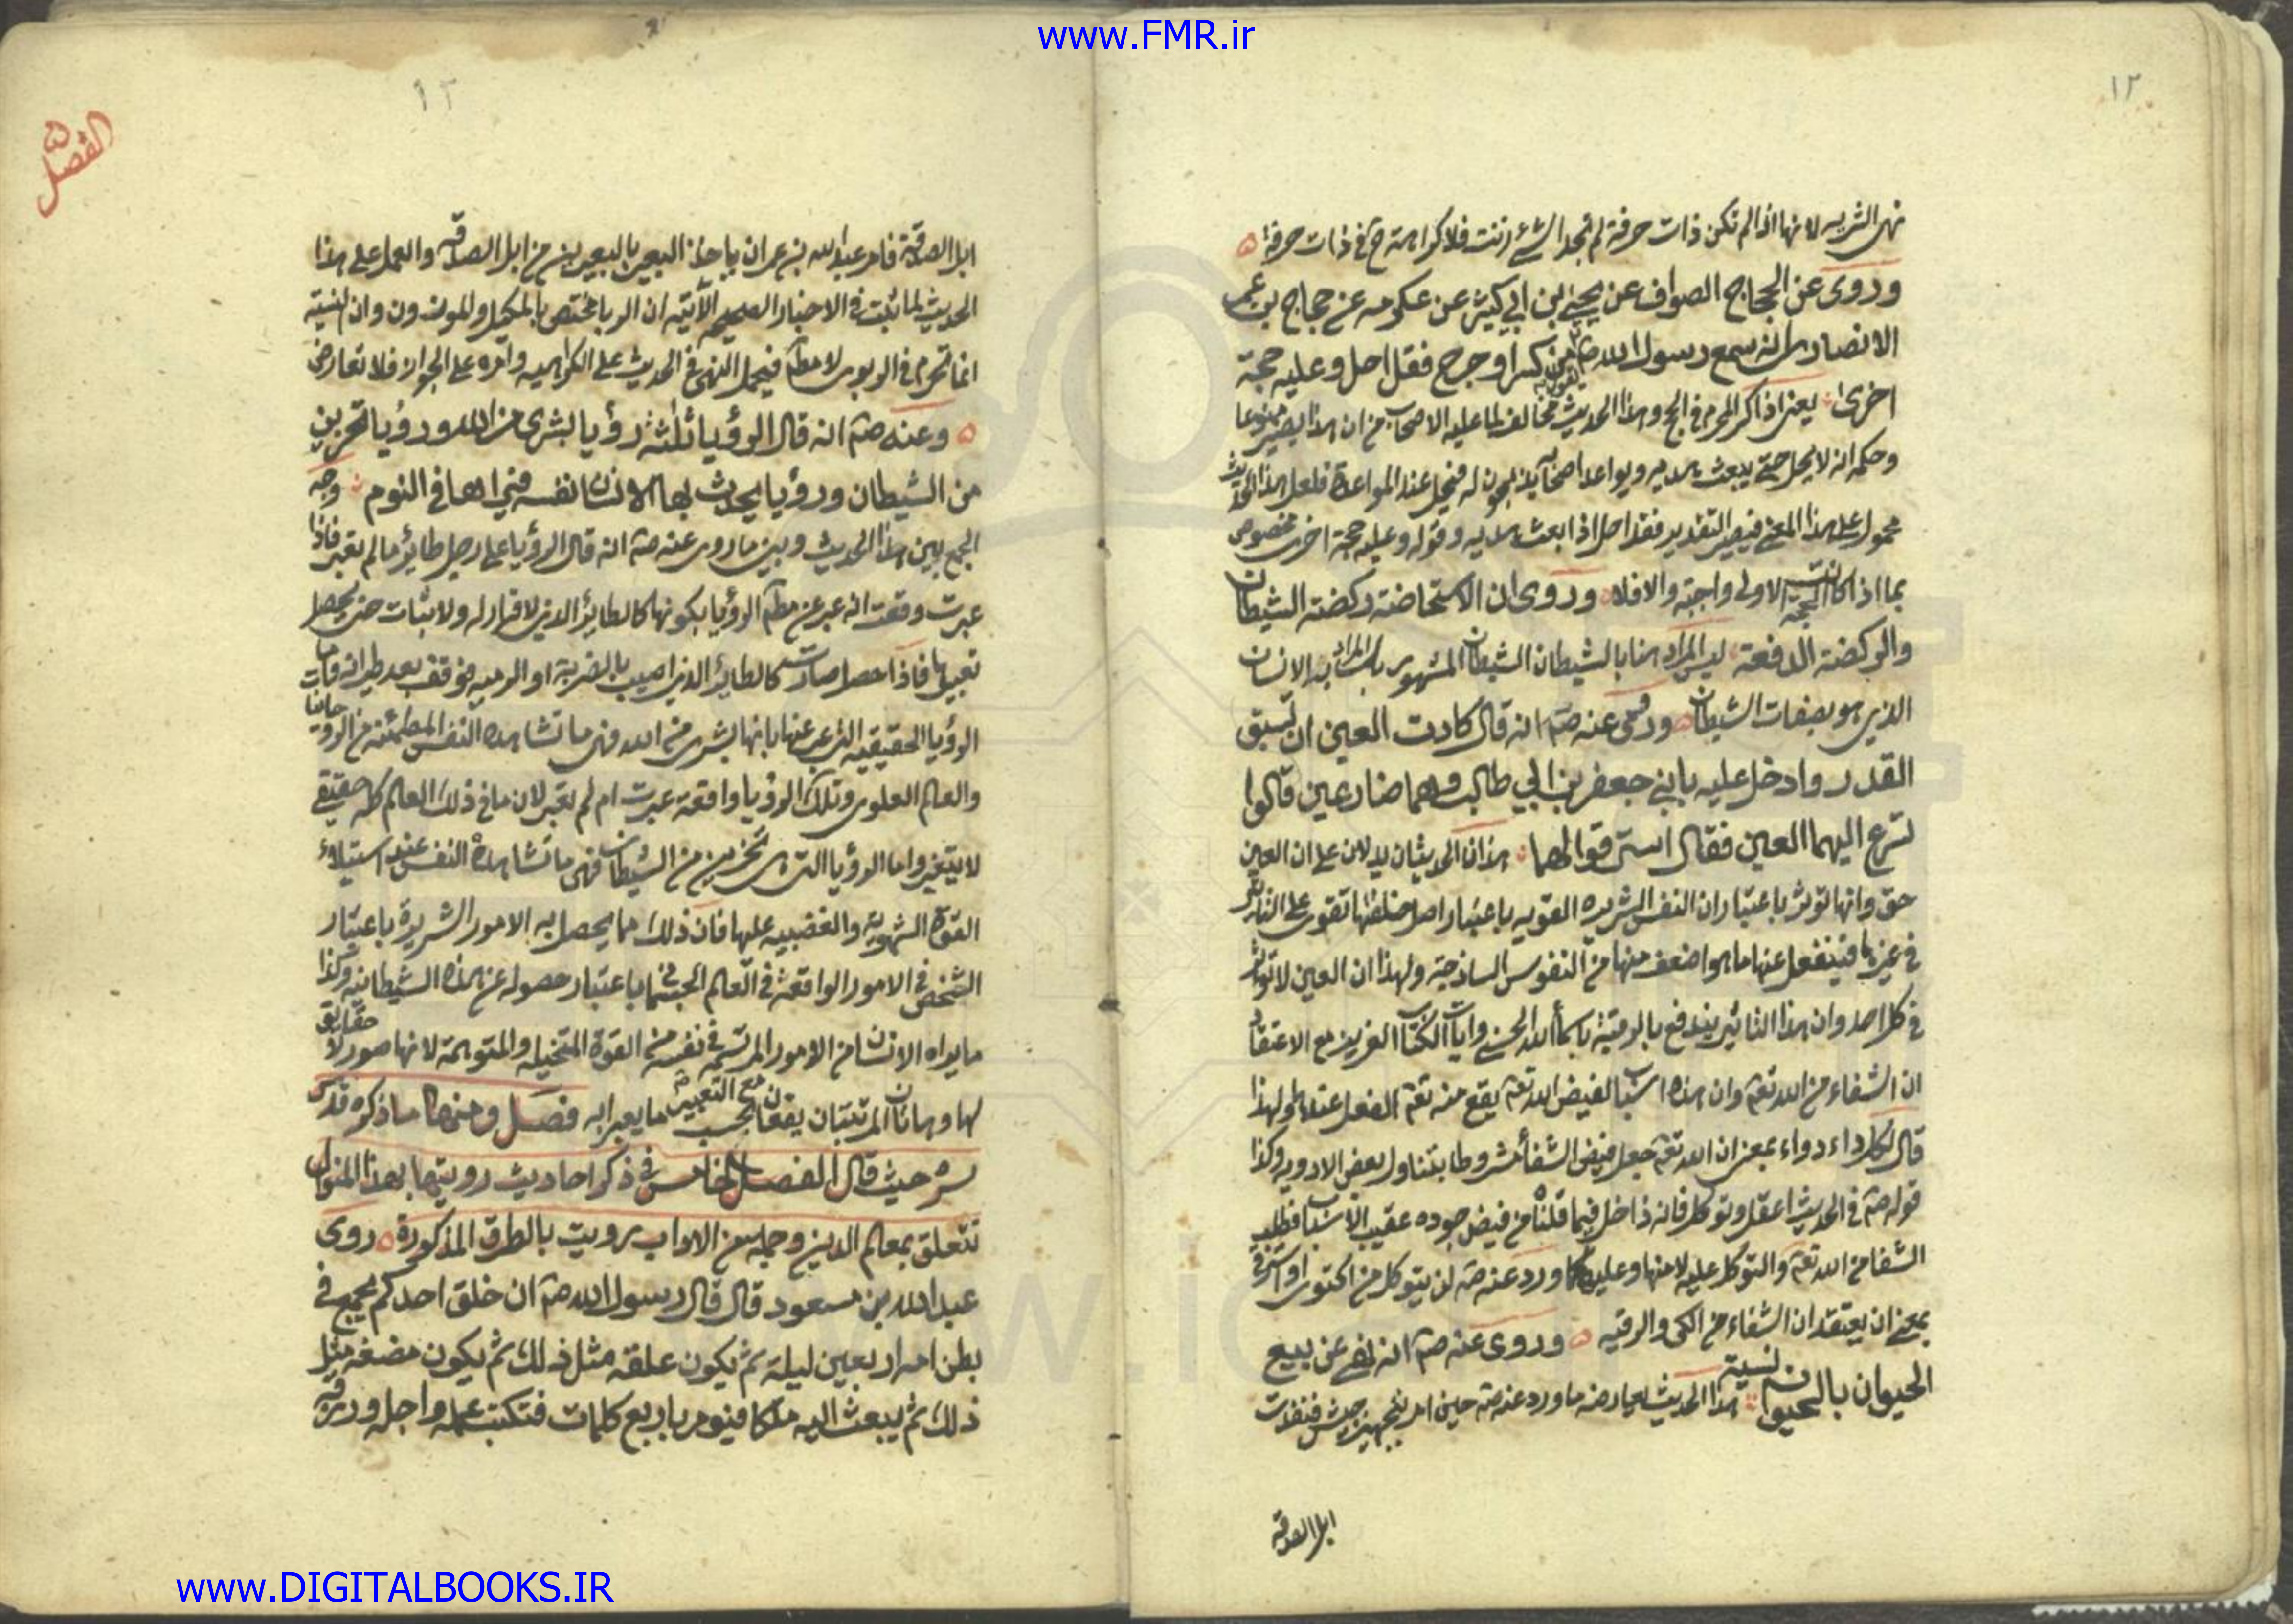 www.FMR.ir
١٢
نهى الشربه لانها اذا لم تكن ذات حرفة لم تجد الشئ زنت فلا كراهة ح فى ذات حرفة
وروى عن الحجاج الصواف عن يحيى بن ابى كثير عن عكرمه عن حجاج بن عمر
الانصارى انه سمع رسول الله صم يقول من كسر او جرح فقد احل وعليه حجة
اخرى يعنى اذا كسر المحرم فى الحج وهذا الحديث مخالف لما عليه الاصحاب من ان هذا يصير ممنوعا
وحكمه انه لا يحل حتى يبعث بهديه ويواعد اصحابه يذبحون له فيحل عند المواعدة فلعل هذا الحديث
محمول على هذا المعنى فيصير التقدير فقد احل اذا بعث بهديه وقوله وعليه حجة اخرى مخصوص
بما اذا كانت الحجة الاولى واجبة والا فلا وروى ان الاستحاضة ركضة الشيطان
والركضة الدفعة ليس المراد هنا بالشيطان الشيطان المشهور بل المراد به الانسان
الذى هو بصفات الشيطان وروى عنه صم انه قال كادت العين ان تسبق
القدر وادخل عليه بابنى جعفر بن ابى طالب وهما ضارعين قالوا
تسرع اليهما العين فقال استرقوا لهما هذان الحديثان يدلان على ان العين
حق وانها توثر باعتبار ان النفس الشريره القويه باعتبار اصل خلقتها تقوى على التاثير
فى غيرها فينفعل عنها ما هو اضعف منها من النفوس الساذجة ولهذا ان العين لا توثر
فى كل احد وان هذا التاثير يندفع بالرقية باسماء الله الحسنى وايات الكتاب العزيز مع الاعتقاد
ان الشفاء من الله تعم وان هذه اسباب لفيض الله تعم يقع منه تعم الفعل عندها ولهذا
قال لكل داء دواء بمعنى ان الله تعم جعل فيض الشفاء مشروطا بتناول بعض الادويه وكذا
قوله صم فى الحديث اعقل وتوكل فانه داخل فيما قلناه من فيض جوده عقيب الاسباب فطلب
الشفا من الله تعم والتوكل عليه لا منها وعليه كما ورد عنه صم لن يتوكل من اكتوى او استرقى
بمعنى ان يعتقد ان الشفاء من الكى والرقيه وروى عنه صم انه نهى عن بيع
الحيوان بالحيوان نسية هذا الحديث يعارضه ما ورد عنه صم حين امر بتجهيز جيش فنفذت
ابل الصدقه
١٣
الفصل ٥
ابل الصدقة فامر عبد الله بن عمر ان ياخذ البعير بالبعيرين من ابل الصدقه والعمل على هذا
الحديث لما ثبت فى الاخبار الصحيحه الآتيه ان الربا مختص بالمكيل والموزون وان النسية
انما تحرم فى الربوى لا مطلقا فيحمل النهى فى الحديث على الكراهيه وامره على الجواز فلا تعارض
وعنه صم انه قال الرؤيا ثلثة رؤيا بشرى من الله ورؤيا تحزين
من الشيطان ورؤيا يحدث بها الانسان نفسه فيراها فى النوم وجه
الجمع بين هذا الحديث وبين ما روى عنه صم انه قال الرؤيا على رجل طائر ما لم تعبر فاذا
عبرت وقعت انه عبر عن مطلق الرؤيا بكونها كالطاير الذى لا قرار له ولا ثبات حتى يحصل
تعبيرها فاذا حصل صارت كالطاير الذى اصيب بالضربة او الرميه فوقف بعد طيرانه
الرؤيا الحقيقيه التى عبر عنها بانها بشرى من الله فهى ما تشاهده النفس المطمئنة من الروحانيات
والعالم العلوى وتلك الرؤيا واقعة عبرت ام لم تعبر لان ما فى ذلك العالم كله حقيقى
لا يتغير واما الرؤيا التى هى تحزين من الشيطان فهى ما تشاهده النفس عند استيلاء
القوة الشهوية والغضبيه عليها فان ذلك مما يحصل به الامور الشريرة باعتبار
الشخص فى الامور الواقعة فى العالم الجسمانى باعتبار حصوله عن هذه الشيطانيه وكذا
ما يراه الانسان من الامور المرتسمه فى نفسه من القوة المتخيله والمتوهمة لانها صور لا حقايق
لها وهاتان المرتبتان يقعان مع التعبير بحسب ما يعبر به فصل ومنها ما ذكره قدس
سره حيث قال الفصل الخامس فى ذكر احاديث رويتها بهذا المنوال
تتعلق بمعالم الدين وجملة من الاداب رويت بالطرق المذكورة روى
عبد الله بن مسعود قال قال رسول الله صم ان خلق احدكم يجمع فى
بطن امه اربعين ليلة ثم يكون علقه مثل ذلك ثم يكون مضغه مثل
ذلك ثم يبعث اليه ملكا فيومر باربع كلمات فتكتب عمله واجله ورزقه
www.DIGITALBOOKS.IR